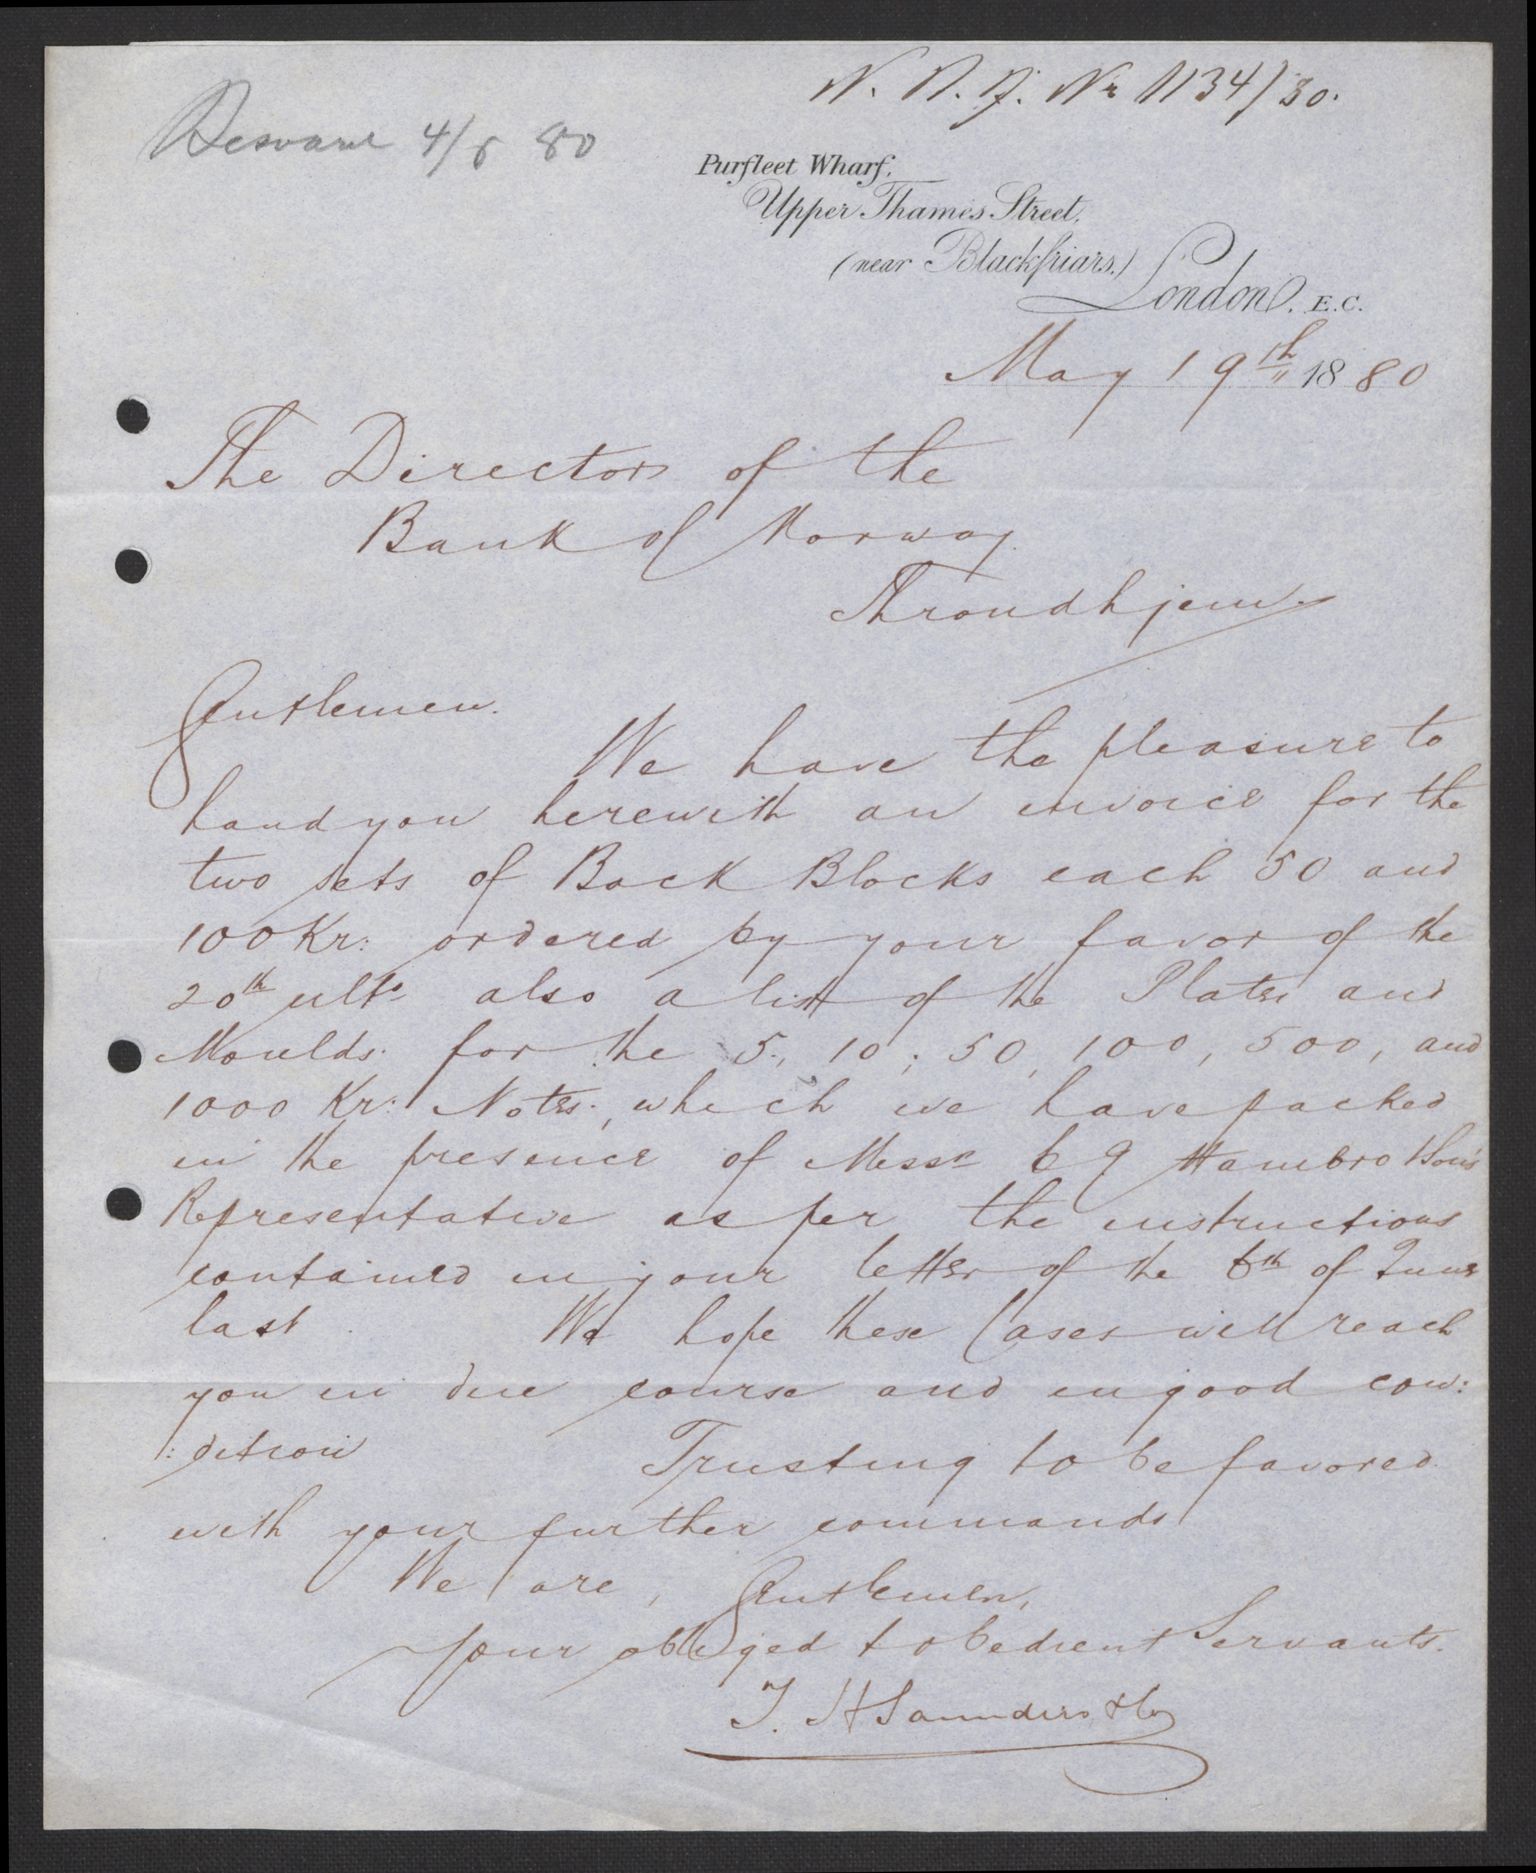 N. B. J. Nr 1134/80.
Besvaret 4/6 80
Purfleet Wharf,
Upper Thames Street,
(near Blackfriars.)
London, E.C.
May 19th 1880
The Directors of the
Bank of Norway
Throndhjem
Gentlemen.
We have the pleasure to
hand you herewith an invoice for the
two sets of Back Blocks each 50 and
100 Kr: ordered by your favor of the
20th ulto also a list of the Plates and
Moulds for the 5, 10, 50, 100, 500, and
1000 Kr: Notes, which we have packed
in the presence of Messrs C J Hambro & Son's
Representative as per the instructions
contained in your letter of the 6th of June
last. We hope these Cases will reach
you in due course and in good con:
:dition Trusting to be favored
with your further commands
We are, Gentlemen,
Your obliged & obedient Servants.
T. H Saunders & Co